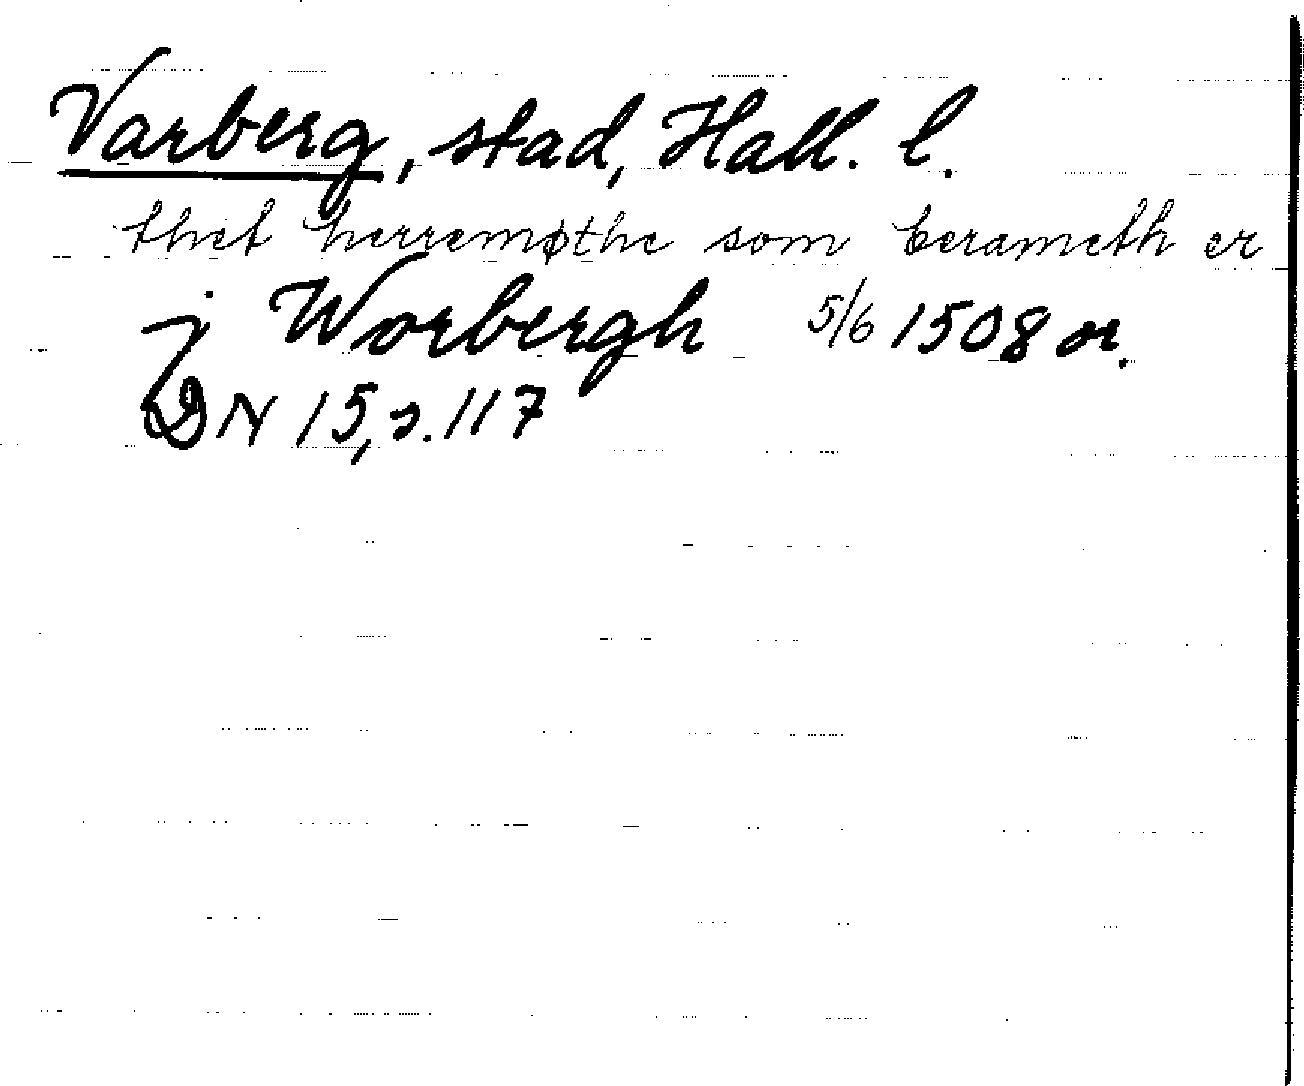 Varberg, stad, Hall. l.
thet herremøthe som berameth er
j Worbergh 5/6 1508 or.
DN 15, s. 117